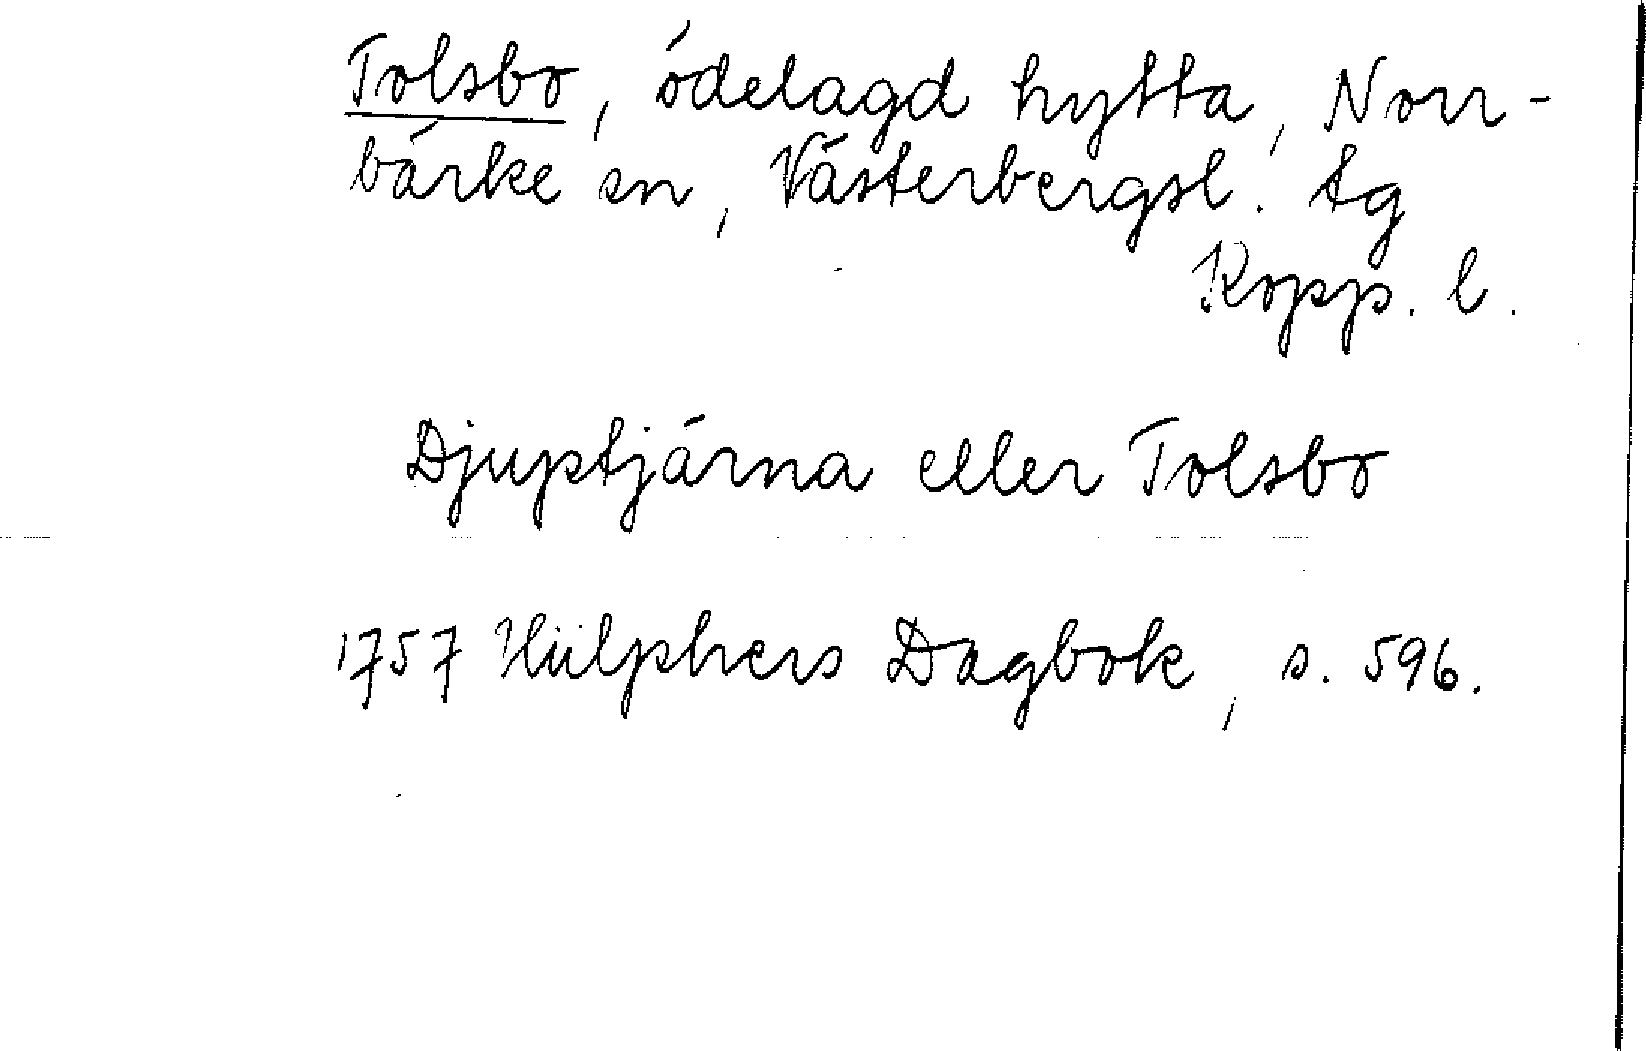 Tolsbo, ödelagd hytta, Norr-
bärke sn, Västerbergsl. tg
Kopp. l.
Djuptjärna eller Tolsbo
1757 Hülphers Dagbok, s. 596.